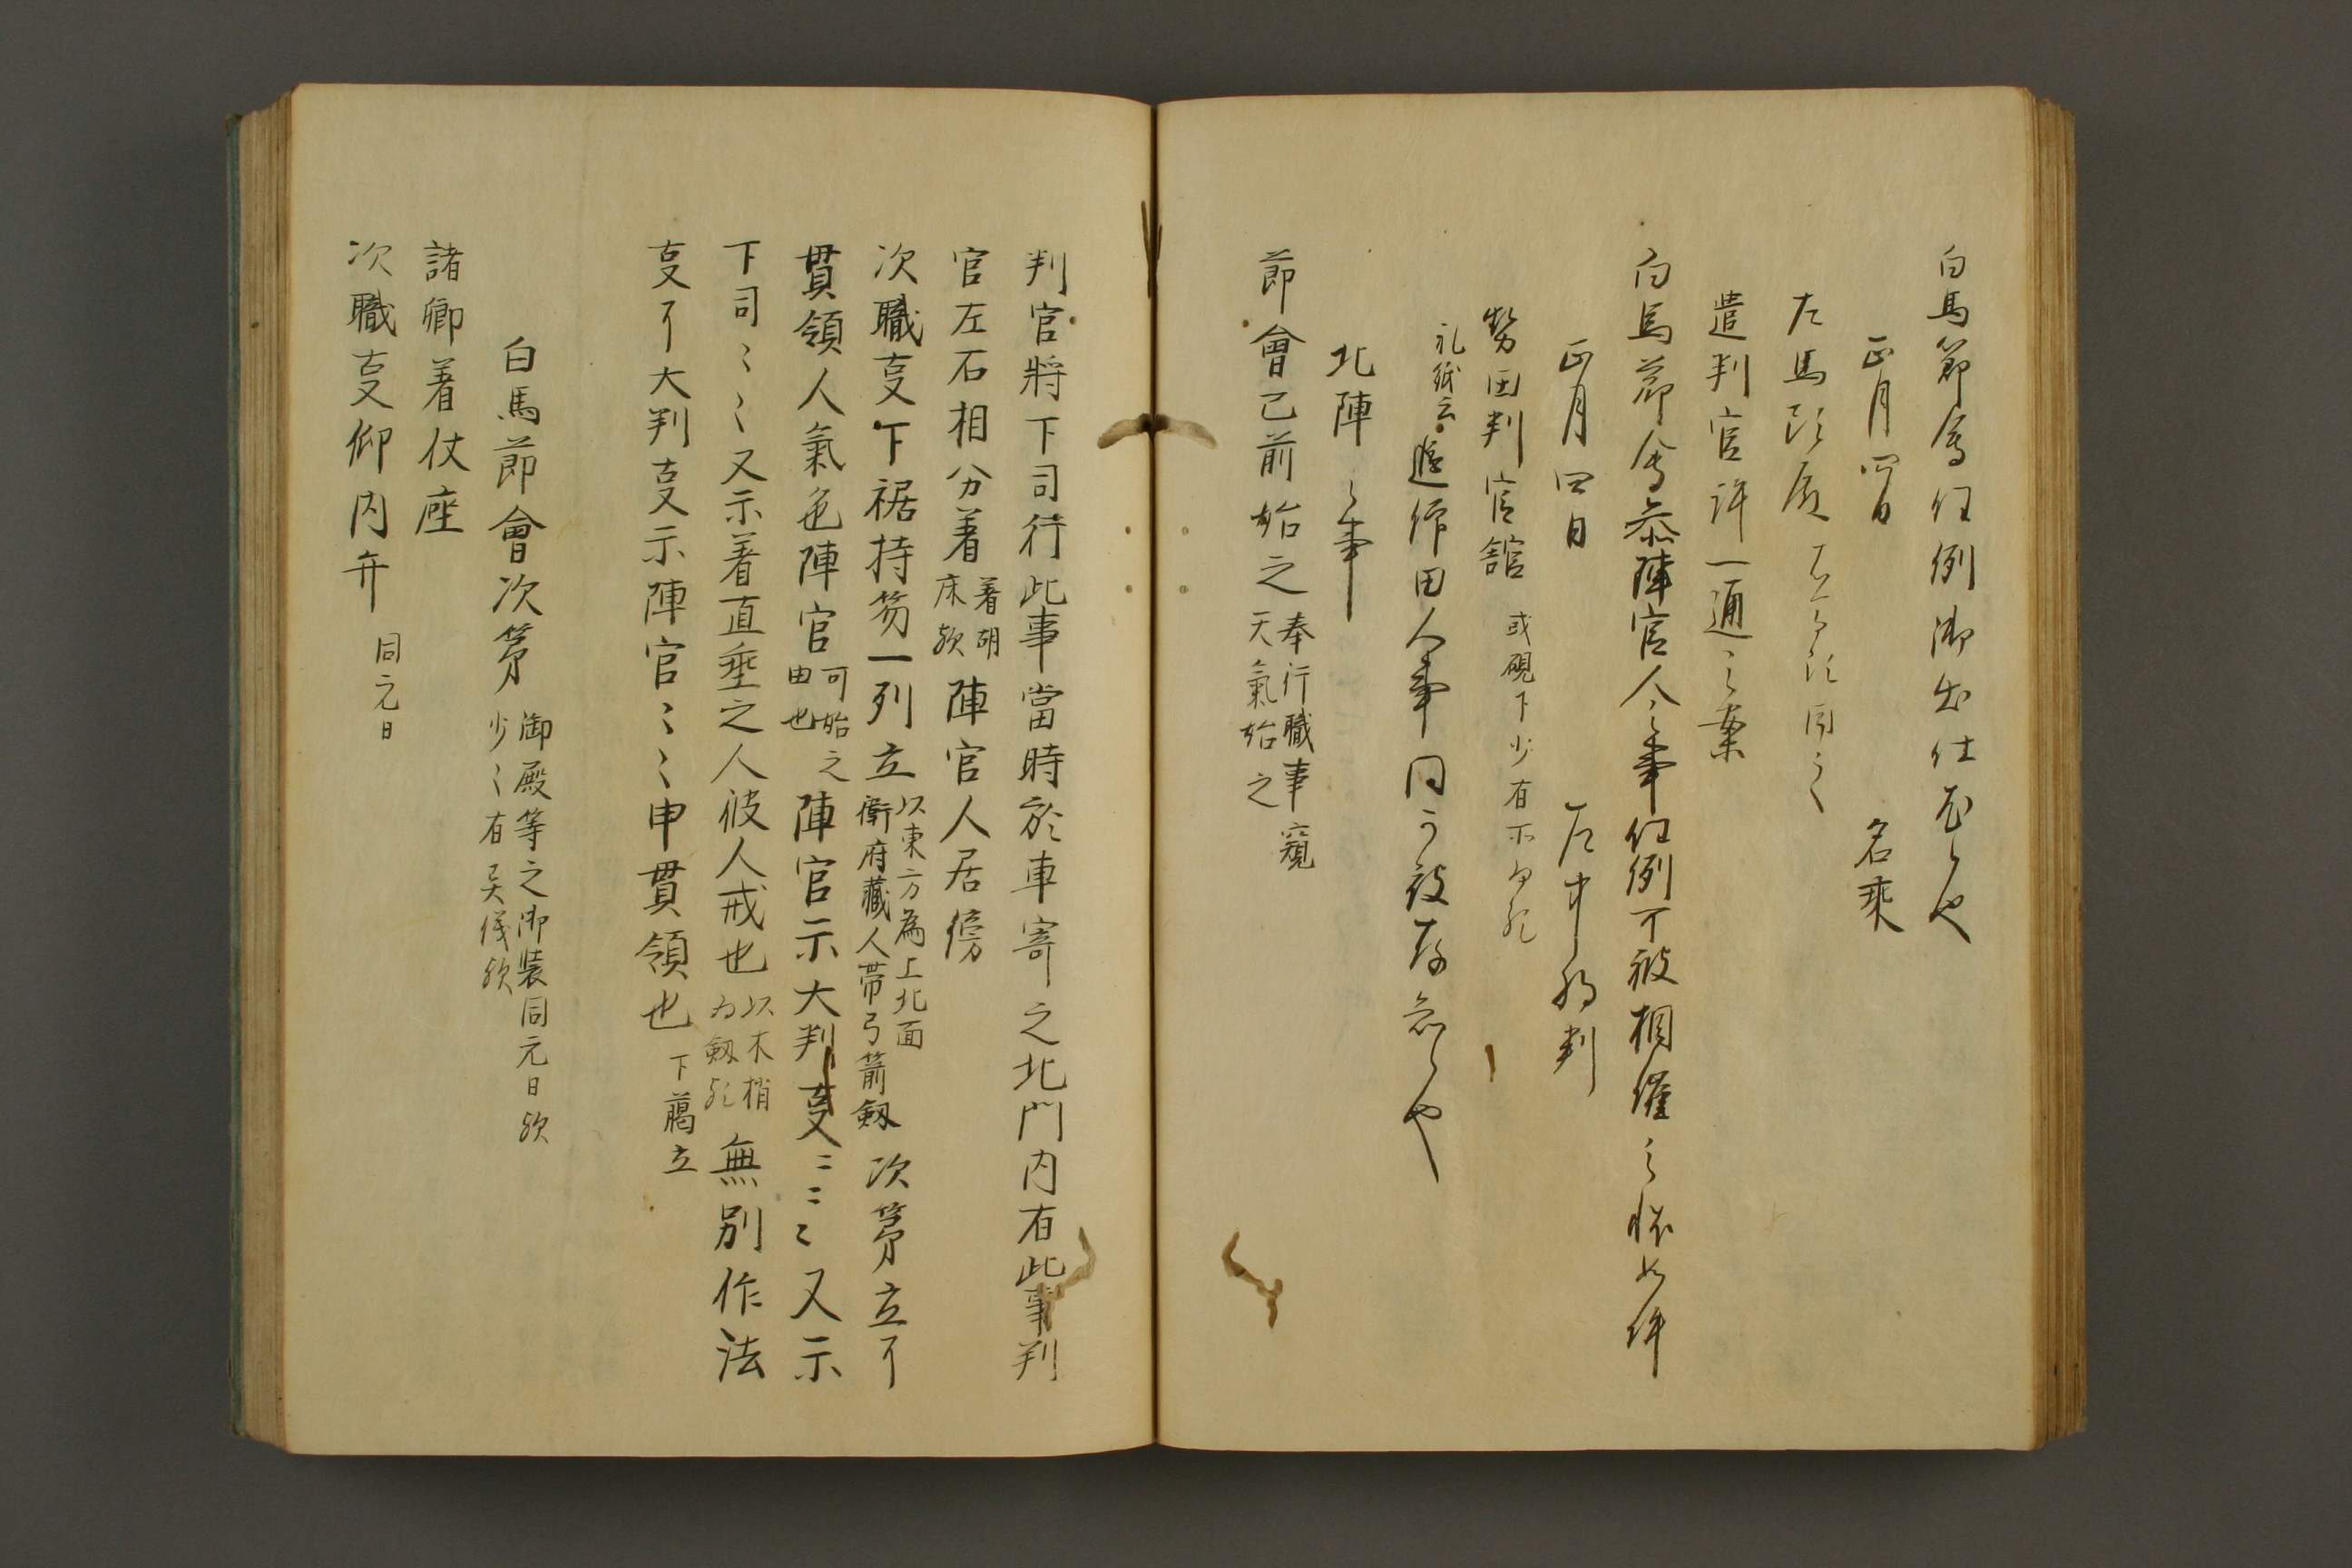 白馬節會任例御出仕
正月四日 名乗
左馬頭殿
遣判官許一通之案
白馬節會参陣官人之事任例可被相催之状如件
正月四日 左中弁判
勢田判官舘 或硯下少有
礼紙云追作田人事同可被存
北陣之事
節會已前始之 奉行職事窺
天氣始之
判官将下司行此事當時於車寄之北門内有此事判
官左右相分着 着胡
床歟 陣官人居傍
次職叓下裾持笏一列立 以東方為上北面
衛府蔵人帯弓箭劔 次第立了
貫領人氣色陣官 可始之
由也 陣官示大判叓〻〻〻又示
下司〻〻又示着直垂之人彼人戒也 以木梢
為劔歟 無別作法
叓了大判叓示陣官〻〻申貫領也 下﨟立
白馬節會次第 御殿等之御装同元日歟
少〻有異儀歟
諸卿着仗座
次職叓仰内弁 同元日